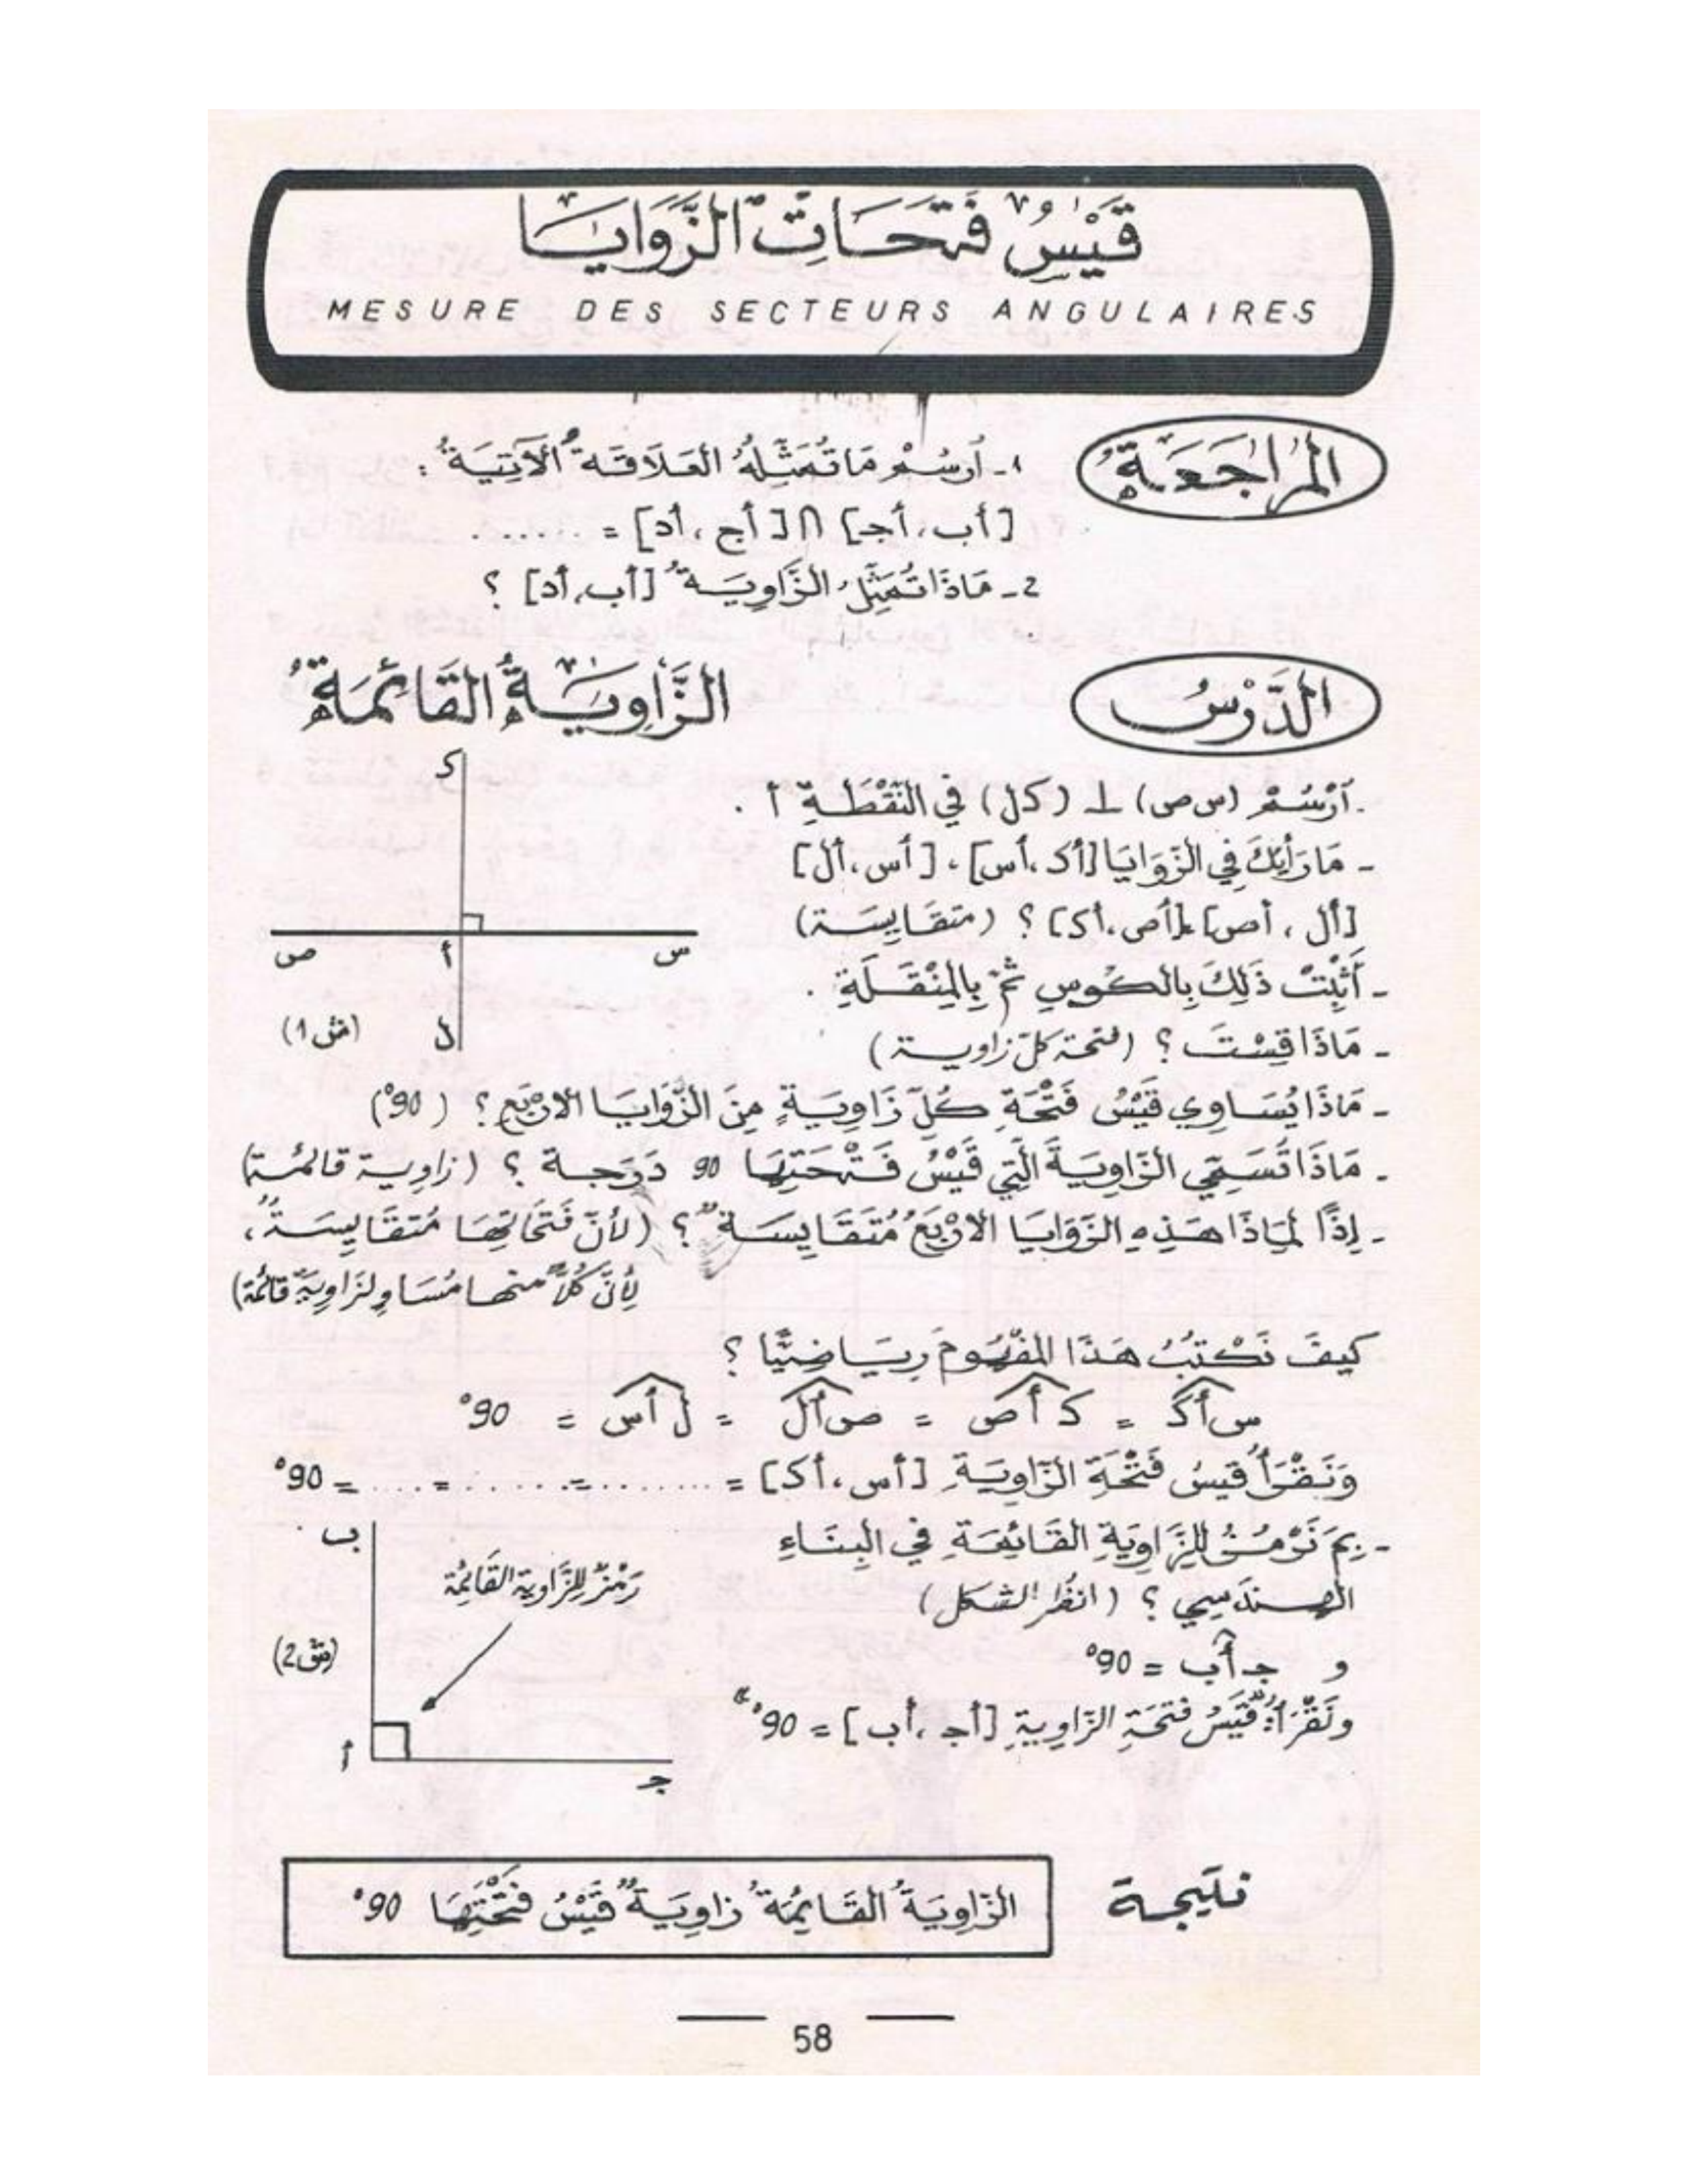 قَيْسُ فَتَحَاتِ الزَّوَايَا
MESURE DES SECTEURS ANGULAIRES
المُرَاجَعَةُ
1- اُرْسُمْ مَا تُمَثِّلُهُ العَلَاقَةُ الآتِيَةُ :
[أب، أجـ] ∩ [أج، أد] = ......
2- مَاذَا تُمَثِّلُ الزَّاوِيَةُ [أب، أد] ؟
الدَّرْسُ
الزَّاوِيَةُ القَائِمَةُ
.اُرْسُمْ (س ص) ⊥ (ك ل) في النّقْطَةِ أ .
- مَا رَأْيُكَ فِي الزَّوَايَا [أك، أس]، [أس، أل]
[أل ، أص] [أص، أك] ؟ (متقَايِسَة)
- أَثْبِتْ ذَلِكَ بِالكُوسِ ثُمّ بِالمِنْقَلَةِ .
- مَاذَا قِسْتَ ؟ (فتحة كلّ زاوية)
- مَاذَا يُسَاوِي قَيْسُ فَتْحَةِ كُلّ زَاوِيَةٍ مِنَ الزَّوَايَا الارْبَعِ ؟ ( 90°)
- مَاذَا تُسَمِّي الزَّاوِيَةَ الّتِي قَيْسُ فَتْحَتِهَا 90 دَرَجة ؟ (زاوية قائمة)
- إِذًا لِمَاذَا هَذِهِ الزَّوَايَا الارْبَعُ مُتَقَايِسَةٌ ؟ (لأنّ فَتَحَاتِهَا مُتقَايِسَةٌ،
لِأنّ كُلًّا منها مُسَاوٍ لِزَاوِيَةٍ قَائِمَة)
كيفَ نَكْتُبُ هَذَا المَفْهُومَ رِيَاضِيًّا ؟
س أ ك = ك أ ص = ص أ ل = ل أ س = 90°
وَنَقْرَأُ قيسُ فَتْحَةِ الزّاوِيَةِ [أس، أك] = ........=......=....= 90°
- بِمَ نَرْمُزُ للِزَّاوِيَةِ القَائِمَةِ في البِنَاءِ
الهندَسِي ؟ (انظُر الشكل)
و جـ أ ب = 90°
ونَقْرَأ: "قَيْسُ فتحَةِ الزّاوِيةِ [أجـ ، أب] = 90°"
ك
س
أ
ص
ل
(ش 1)
ب
رَمْزٌ للِزَّاوِيةِ القَائِمَة
(ش 2)
أ
جـ
نتيجة
الزّاوِيَةُ القَائِمَةُ زاوِيَةٌ قَيْسُ فتْحَتِهَا 90°
58